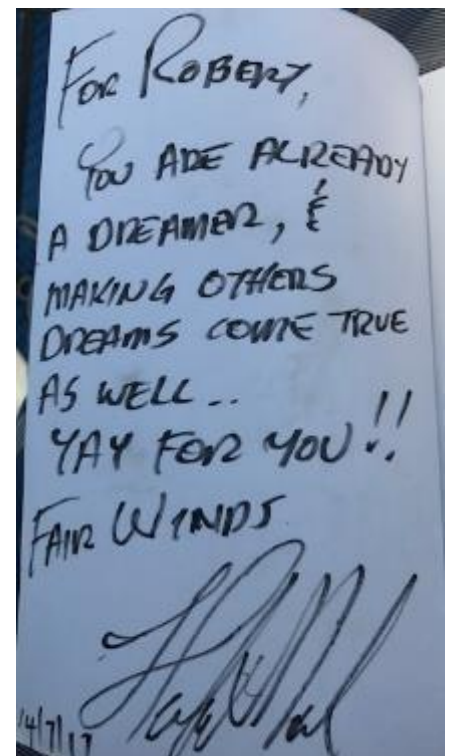 For Robert,
You are already
a dreamer, &
making others
dreams come true
as well..
Yay for you!!
Fair Winds
4/7/17